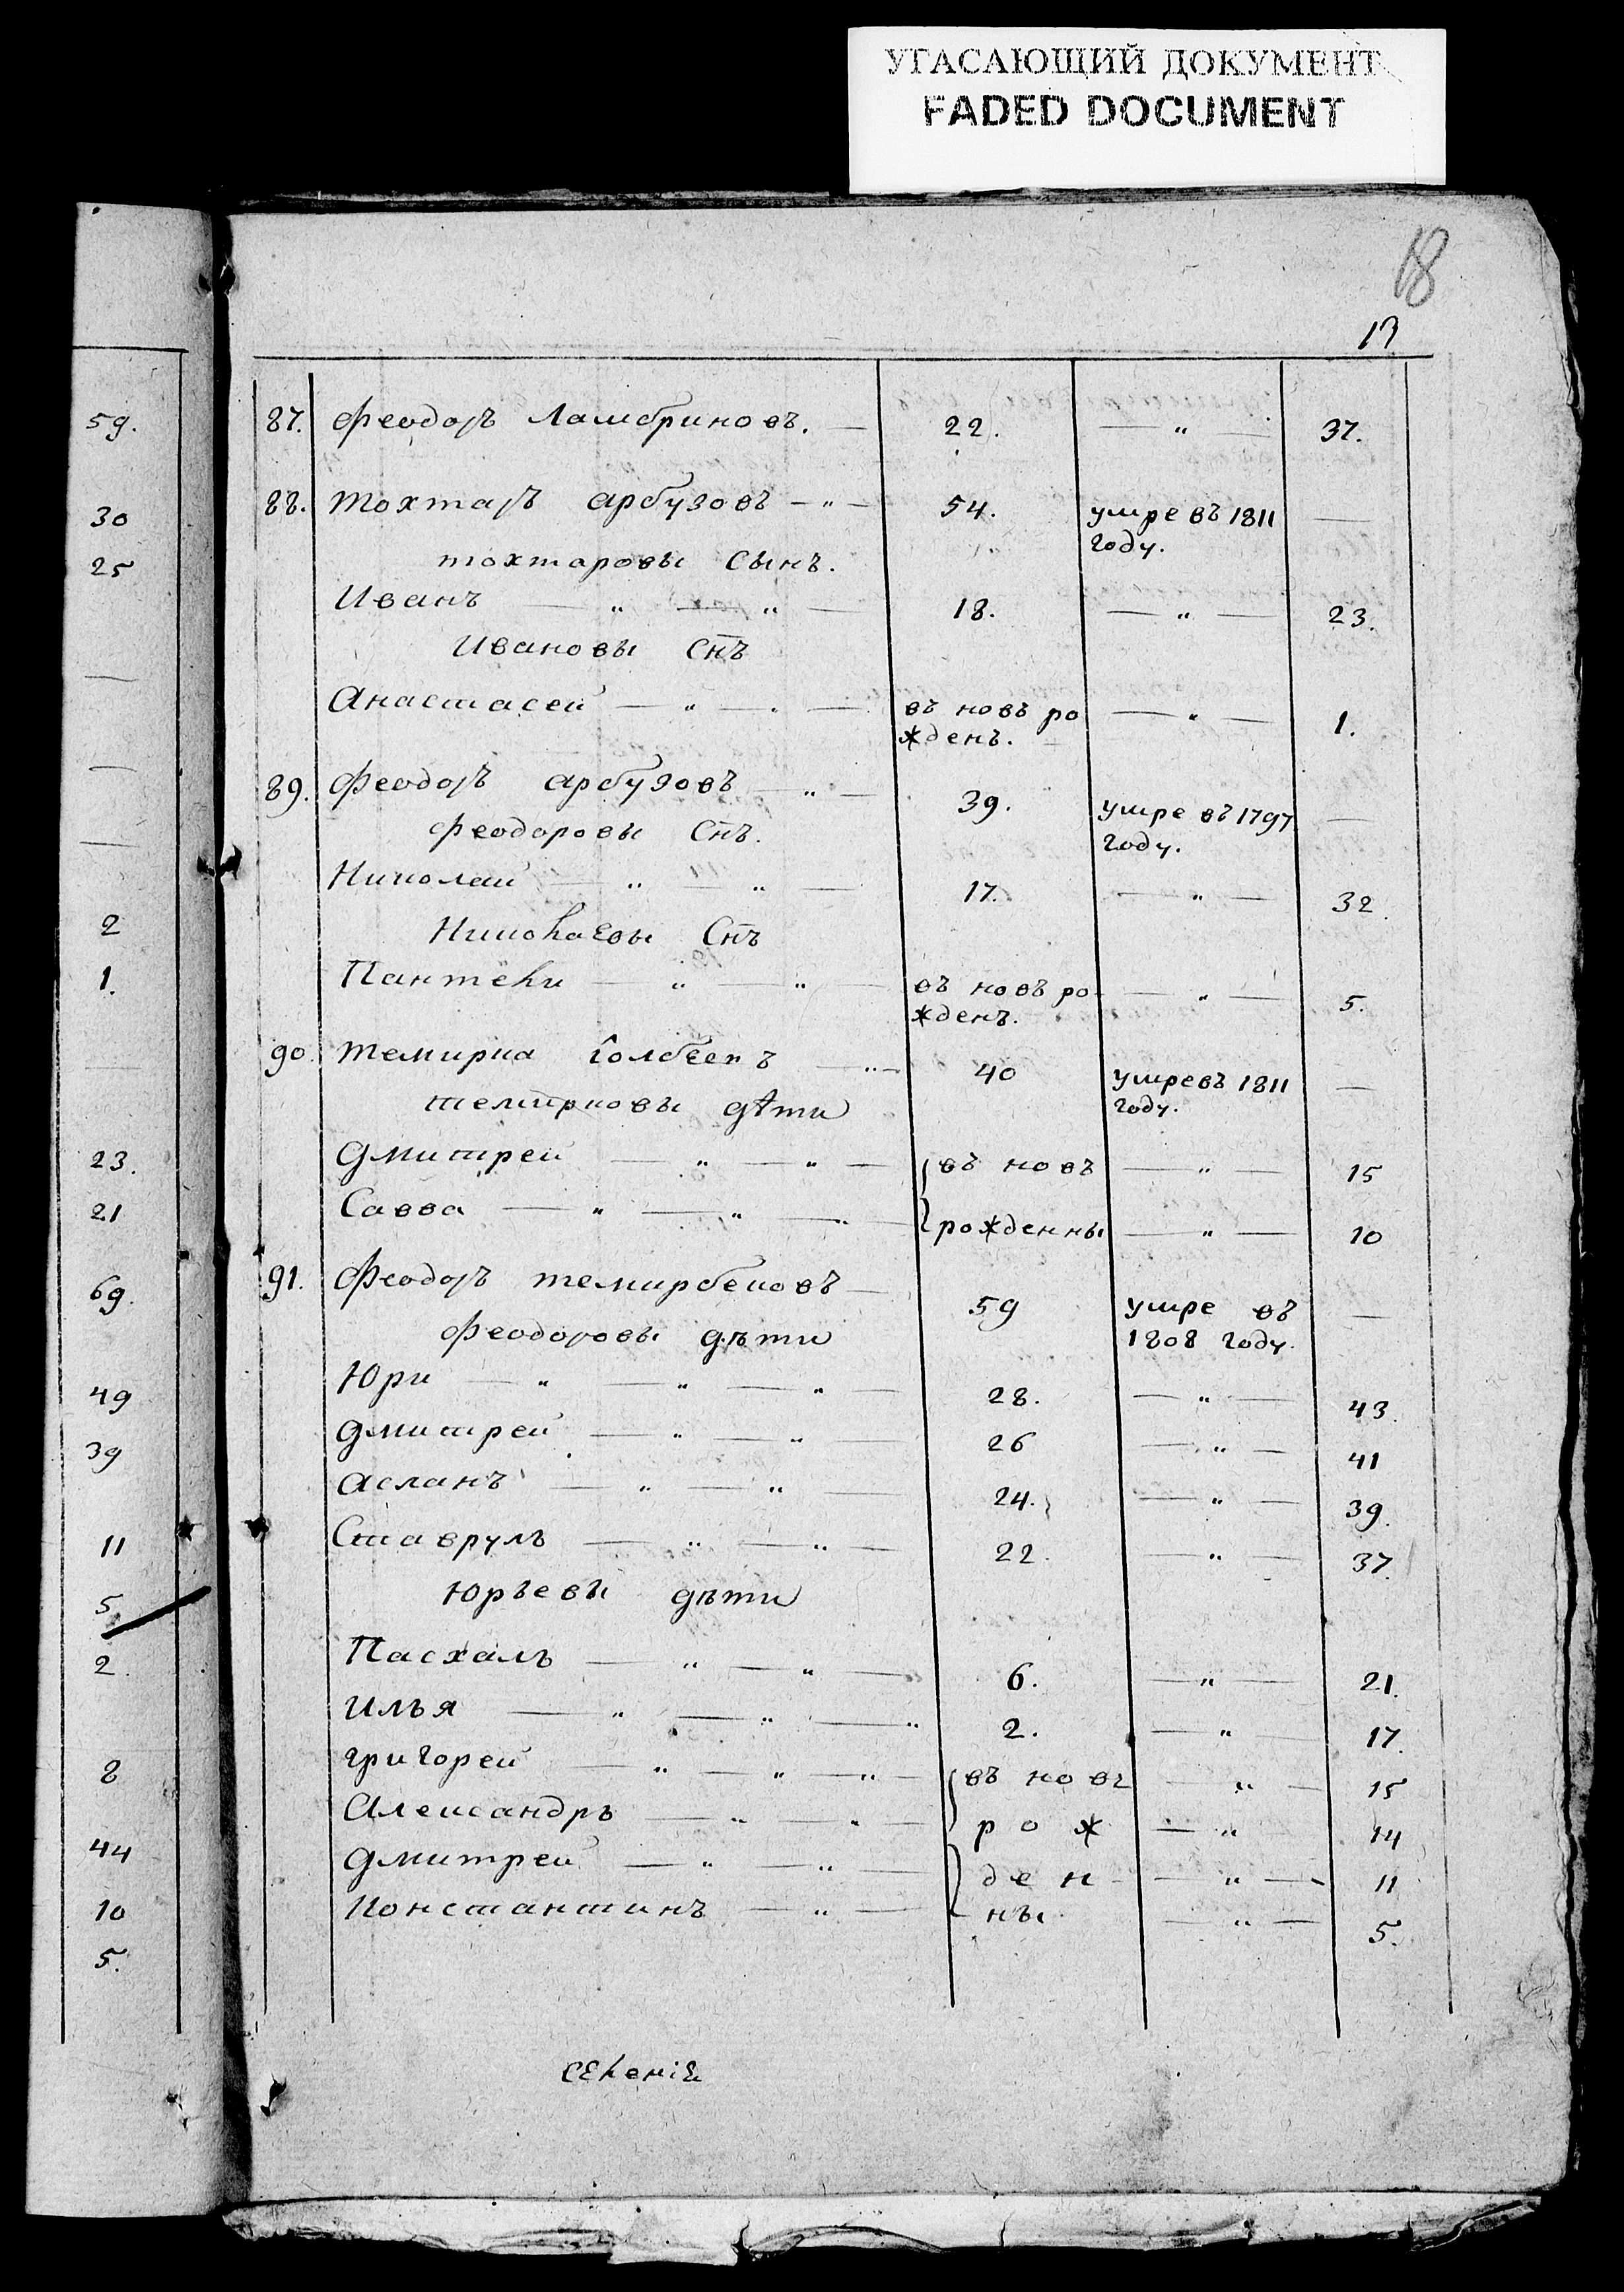 УГАСАЮЩИЙ ДОКУМЕНТ
FADED DOCUMENT
18
13
59.
30
25
2
1.
23.
21
69.
49
39
11
5
2.
8
44
10
5.
87. Феодоръ Ламбриновъ. — 22. — „ — 37.
88. Тохтаръ арбузовъ — „ — 54. умре въ 1811 —
году.
тохтаровы Сынъ.
Иванъ — „ — „ — 18. — „ — 23.
Ивановы Снъ
Анастасей — „ — „ — въ новъ ро — „ — 1.
жденъ.
89. Феодоръ арбузовъ — „ — 39. умре въ 1797 —
феодоровы Снъ. году.
Николай — „ — „ — 17. — „ — 32.
Николаевы Снъ
Пантели — „ — „ — въ новъ ро- — „ — 5.
жденъ.
90. Темирка — „ — 40 умре въ 1811 —
темирковы дѣти году.
Дмитрей — „ — „ — въ новъ — „ — 15
Савва — „ — „ — „ — рожденны — „ — 10
91. Феодоръ темирбековъ — 59 умре въ —
феодоровы дѣти 1808 году.
Юри — „ — „ — „ — 28. — „ — 43.
Дмитрей — „ — „ — 26 — „ — 41
асланъ — „ — „ — 24. — „ — 39.
Ставрулъ — „ — „ — 22. — „ — 37.
Юрьевы дѣти
Пасхалъ — „ — „ — 6. — „ — 21.
Илья — „ — „ — „ 2. — „ — 17.
григорей — „ — „ — „ — въ новъ — „ — 15
Александръ — „ — „ — рож — „ 14
Дмитрей — „ — „ — ден- — „ — 11
Константинъ — „ — ны — „ — 5.
селенiя